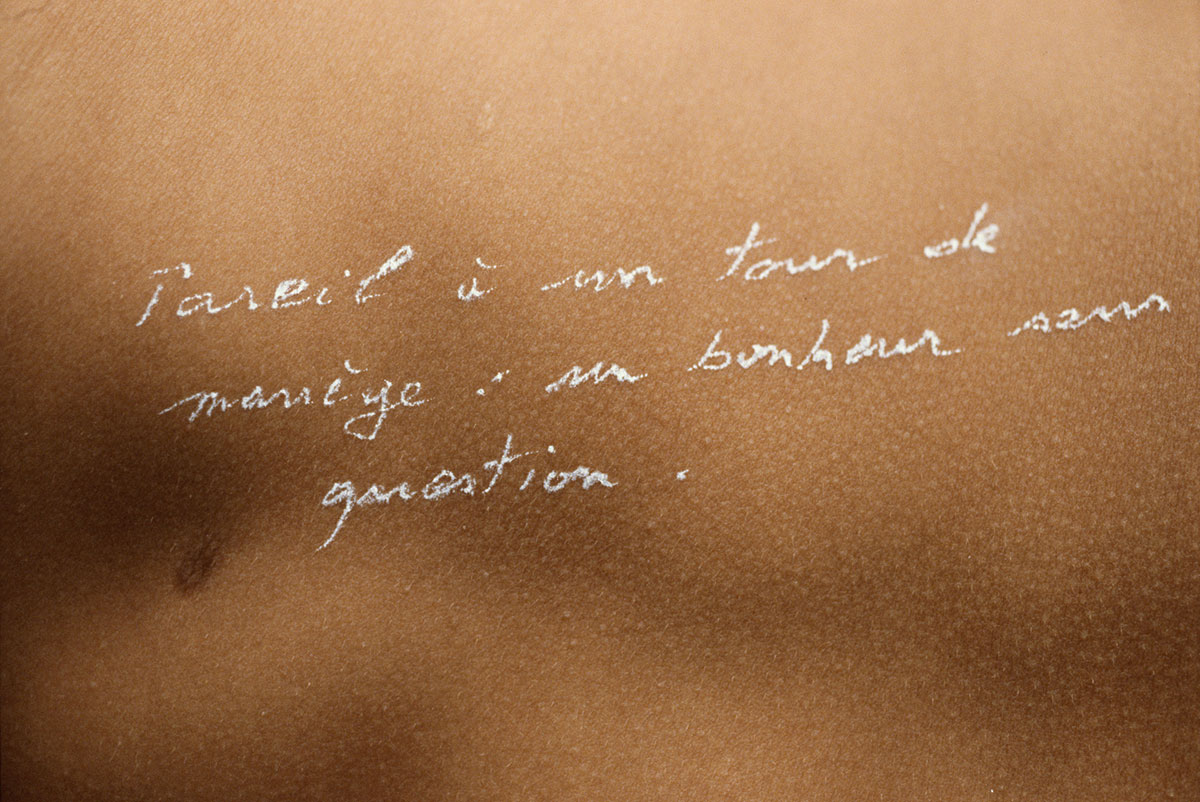 Pareil à un tour de
manège : un bonheur sans
question .